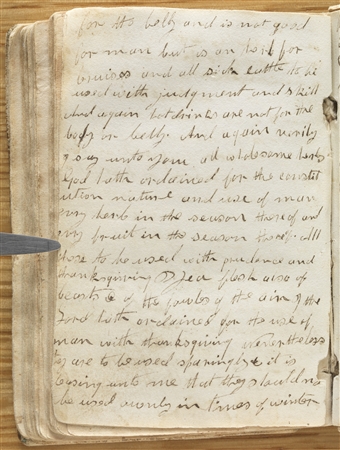 for the belly and is not good
for man but is an herb for
bruises and all sick cattle to be
used with judgment and skill
And again hot drinks are not for the
body or belly And again verily
I say unto you all wholesome herbs
God hath ordained for the constit
ution nature and use of man
evry herb in the season thereof and
evry fruit in the season thereof all
these to be used with prudence and
thanksgiving Yea flesh also of
beasts & of the fowls of the air I the
Lord hath ordained for the use of
man with thanksgiving nevertheless
they are to be used sparingly & it is
pleasing unto me that they should not
be used ownly in times of winter